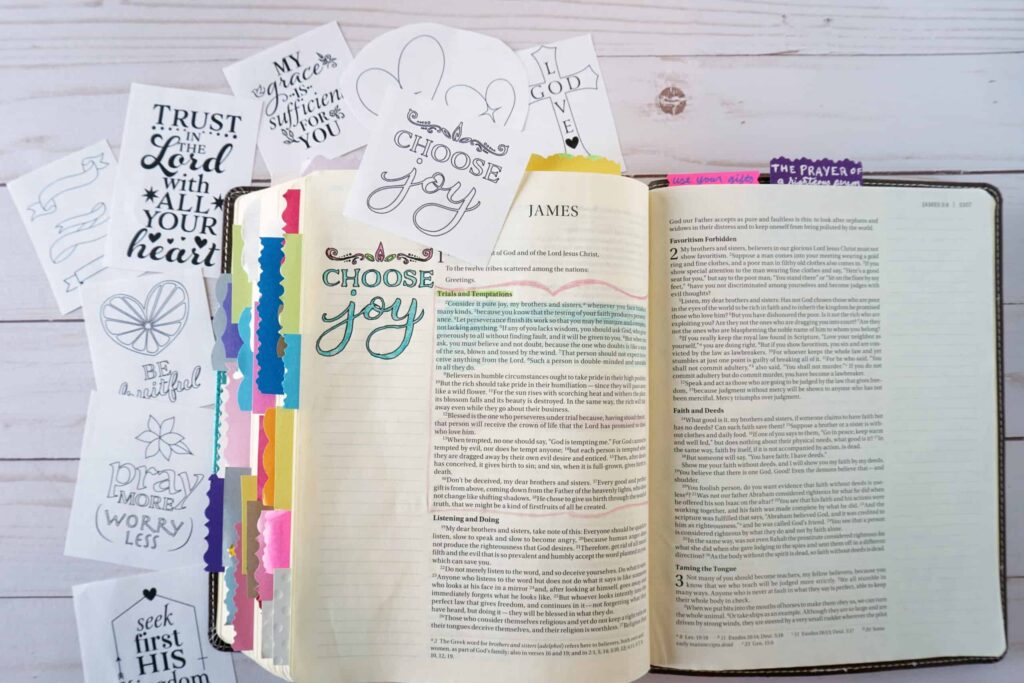 MY
grace
IS
sufficient
FOR
YOU
TRUST
IN
THE
Lord
with
ALL
YOUR
heart
BE
YOU
tiful
pray
MORE
WORRY
LESS
seek
first
HIS
Kingdom
L
GOD
V
E
CHOOSE
joy
CHOOSE
joy
use your gifts
THE PRAYER OF
a righteous
JAMES
of God and of the Lord Jesus Christ,
To the twelve tribes scattered among the nations:
Greetings.
Trials and Temptations
2Consider it pure joy, my brothers and sisters,a whenever you face
many kinds, 3because you know that the testing of your faith produces
ance. 4Let perseverance finish its work so that you may be mature and
not lacking anything. 5If any of you lacks wisdom, you should ask God,
generously to all without finding fault, and it will be given to you. 6But when
ask, you must believe and not doubt, because the one who doubts is like
of the sea, blown and tossed by the wind. 7That person should not expect to
ceive anything from the Lord. 8Such a person is double-minded and
in all they do.
9Believers in humble circumstances ought to take pride in their high
10But the rich should take pride in their humiliation — since they will
like a wild flower. 11For the sun rises with scorching heat and withers the
its blossom falls and its beauty is destroyed. In the same way, the rich will
away even while they go about their business.
12Blessed is the one who perseveres under trial because, having stood the
that person will receive the crown of life that the Lord has promised to
who love him.
13When tempted, no one should say, "God is tempting me." For God cannot
tempted by evil, nor does he tempt anyone; 14but each person is tempted
they are dragged away by their own evil desire and enticed. 15Then, after
has conceived, it gives birth to sin; and sin, when it is full-grown, gives birth
death.
16Don't be deceived, my dear brothers and sisters. 17Every good and perfect
gift is from above, coming down from the Father of the heavenly lights, who
not change like shifting shadows. 18He chose to give us birth through the word
truth, that we might be a kind of firstfruits of all he created.
Listening and Doing
19My dear brothers and sisters, take note of this: Everyone should be quick
listen, slow to speak and slow to become angry, 20because human anger
not produce the righteousness that God desires. 21Therefore, get rid of all
filth and the evil that is so prevalent and humbly accept the word planted in
which can save you.
22Do not merely listen to the word, and so deceive yourselves. Do what it
23Anyone who listens to the word but does not do what it says is like someone
who looks at his face in a mirror 24and, after looking at himself, goes away and
immediately forgets what he looks like. 25But whoever looks intently into the
perfect law that gives freedom, and continues in it — not forgetting what they
have heard, but doing it — they will be blessed in what they do.
26Those who consider themselves religious and yet do not keep a tight rein
their tongues deceive themselves, and their religion is worthless. 27Religion that
a 2 The Greek word for brothers and sisters (adelphoi) refers here to believers, both men and
women, as part of God's family; also in verses 16 and 19; and in 2:1, 5, 14; 3:10, 12; 4:11; 5:7, 9,
10, 12, 19.
God our Father accepts as pure and faultless is this: to look after orphans and
widows in their distress and to keep oneself from being polluted by the world.
Favoritism Forbidden
2 My brothers and sisters, believers in our glorious Lord Jesus Christ must not
show favoritism. 2Suppose a man comes into your meeting wearing a gold
ring and fine clothes, and a poor man in filthy old clothes also comes in. 3If you
show special attention to the man wearing fine clothes and say, "Here's a good
seat for you," but say to the poor man, "You stand there" or "Sit on the floor by my
feet," 4have you not discriminated among yourselves and become judges with
evil thoughts?
5Listen, my dear brothers and sisters: Has not God chosen those who are poor
in the eyes of the world to be rich in faith and to inherit the kingdom he promised
those who love him? 6But you have dishonored the poor. Is it not the rich who are
exploiting you? Are they not the ones who are dragging you into court? 7Are they
not the ones who are blaspheming the noble name of him to whom you belong?
8If you really keep the royal law found in Scripture, "Love your neighbor as
yourself," you are doing right. 9But if you show favoritism, you sin and are con-
victed by the law as lawbreakers. 10For whoever keeps the whole law and yet
stumbles at just one point is guilty of breaking all of it. 11For he who said, "You
shall not commit adultery," also said, "You shall not murder." If you do not
commit adultery but do commit murder, you have become a lawbreaker.
12Speak and act as those who are going to be judged by the law that gives free-
dom, 13because judgment without mercy will be shown to anyone who has not
been merciful. Mercy triumphs over judgment.
Faith and Deeds
14What good is it, my brothers and sisters, if someone claims to have faith but
has no deeds? Can such faith save them? 15Suppose a brother or a sister is with-
out clothes and daily food. 16If one of you says to them, "Go in peace; keep warm
and well fed," but does nothing about their physical needs, what good is it? 17In
the same way, faith by itself, if it is not accompanied by action, is dead.
18But someone will say, "You have faith; I have deeds."
Show me your faith without deeds, and I will show you my faith by my deeds.
19You believe that there is one God. Good! Even the demons believe that — and
shudder.
20You foolish person, do you want evidence that faith without deeds is use-
less? 21Was not our father Abraham considered righteous for what he did when
he offered his son Isaac on the altar? 22You see that his faith and his actions were
working together, and his faith was made complete by what he did. 23And the
scripture was fulfilled that says, "Abraham believed God, and it was credited to
him as righteousness," and he was called God's friend. 24You see that a person
is considered righteous by what they do and not by faith alone.
25In the same way, was not even Rahab the prostitute considered righteous for
what she did when she gave lodging to the spies and sent them off in a different
direction? 26As the body without the spirit is dead, so faith without deeds is dead.
Taming the Tongue
3 Not many of you should become teachers, my fellow believers, because you
know that we who teach will be judged more strictly. 2We all stumble in
many ways. Anyone who is never at fault in what they say is perfect, able to keep
their whole body in check.
3When we put bits into the mouths of horses to make them obey us, we can turn
the whole animal. 4Or take ships as an example. Although they are so large and are
driven by strong winds, they are steered by a very small rudder wherever the pilot